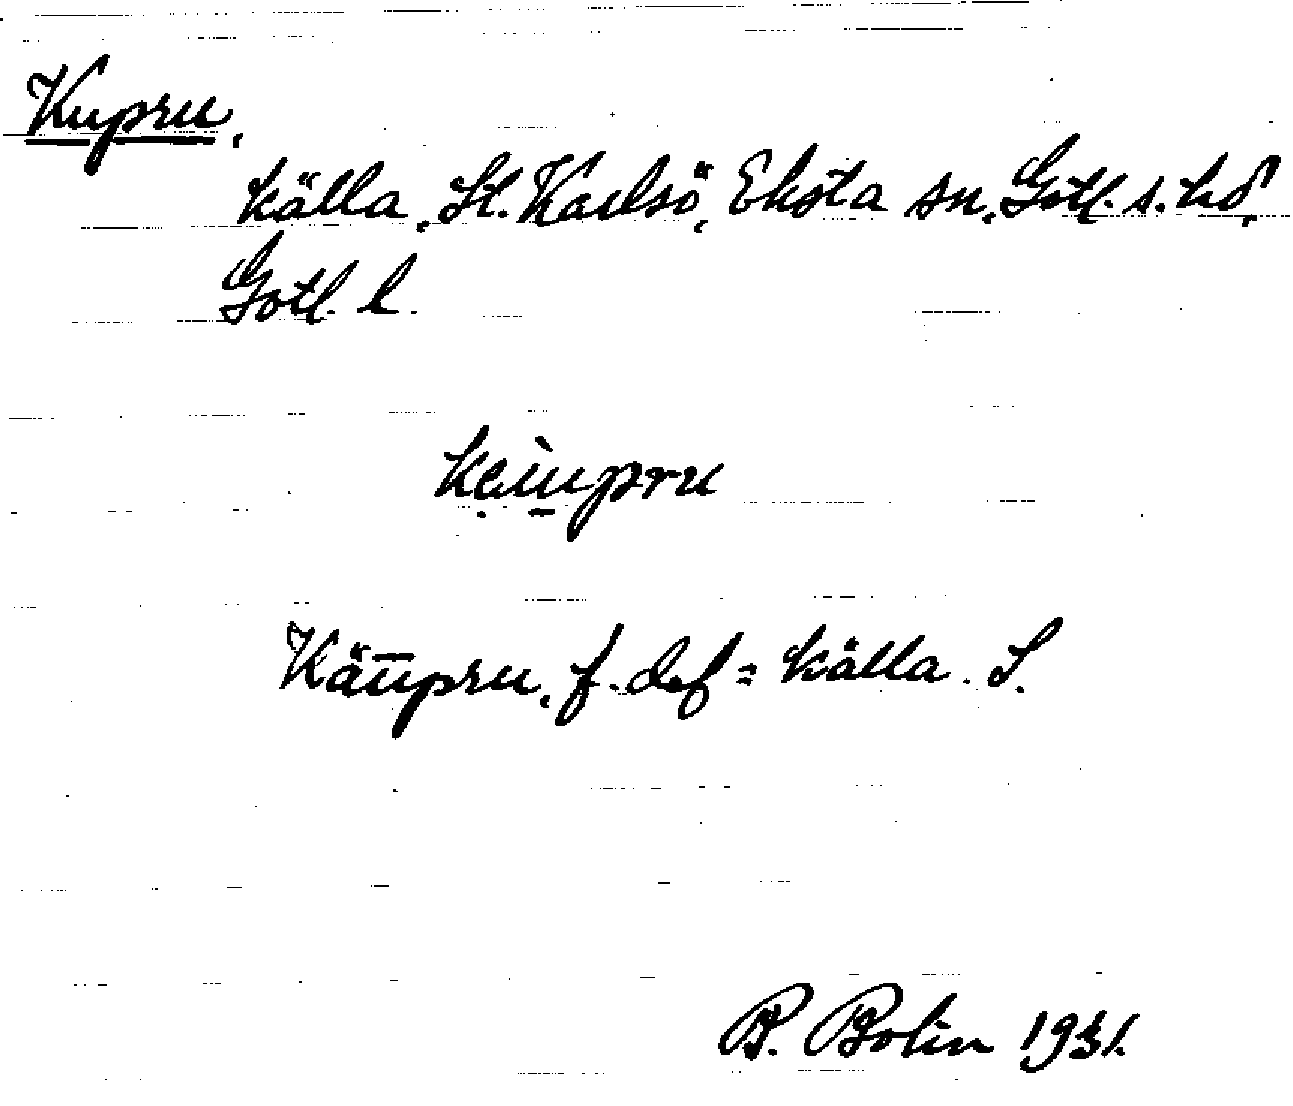 Kupru,
källa, St. Karlsö, Eksta sn, Gotl. s. hd,
Gotl. l.
kęù̱pru
Käūpru, f. def = källa. S.
B. Bolin 1931.